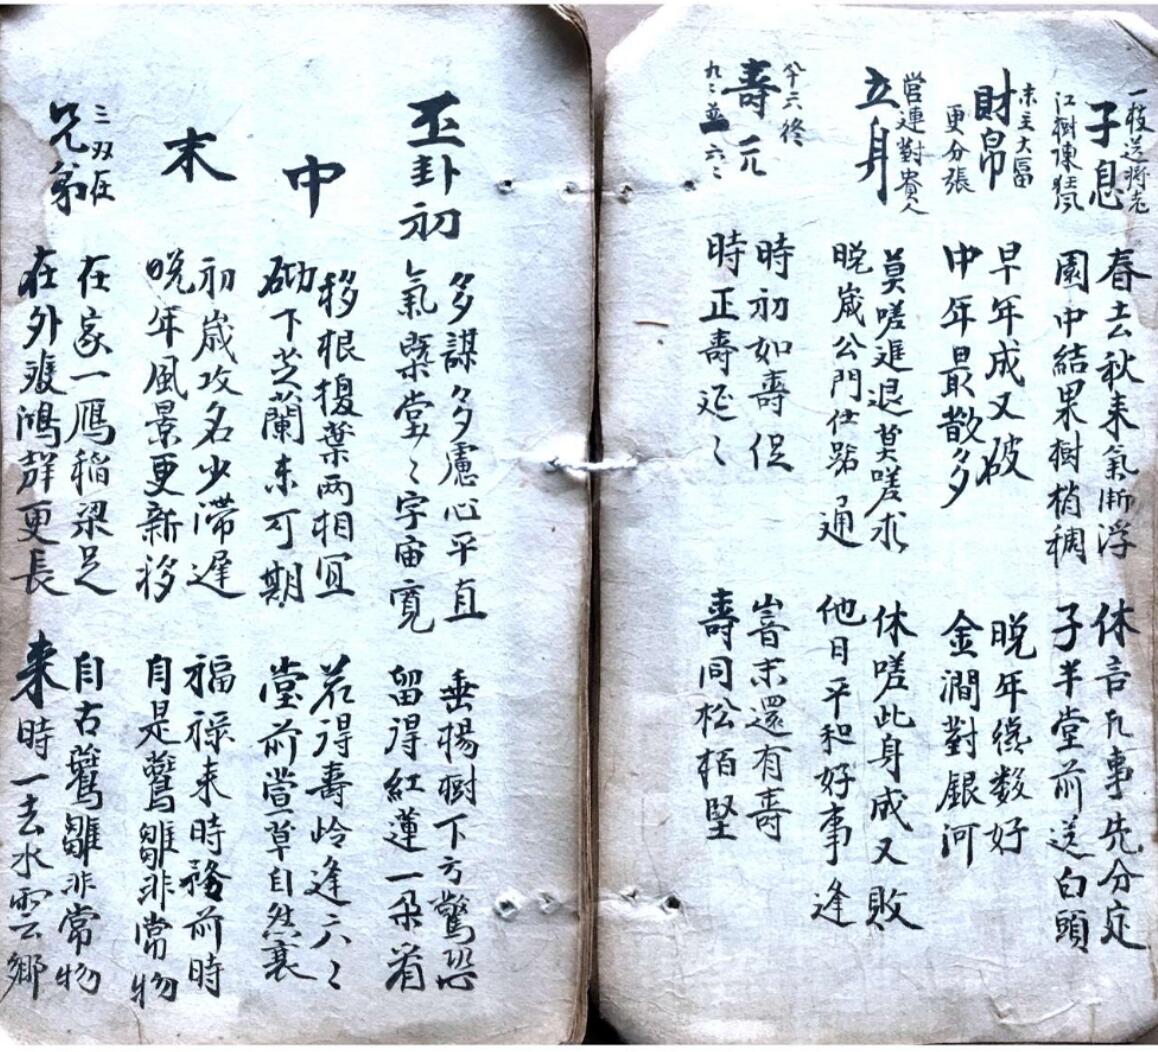 一枝送將老
子息
江樹陳狂風
春去秋來氣漸浮 休言凡事先分定
園中結果樹梢稠 子半堂前送白頭
末主大富
財帛
更分張
早年成又破 晚年終数好
中年最散多 金澗對銀河
営連對貴人
立身
莫嗟進退莫嗟求 休嗟此身成又敗
晚嵗公門仕路通 他日平和好事逢
六終
壽元
九〻並六〻
時初如壽促 嵓末還有壽
時正壽延〻 壽同松栢堅
丕卦初
多謀多慮心平直 垂楊樹下方驚恐
氣槩堂〻字宙寬 留得紅蓮一朶着
中
移根換葉两相宜 若得壽岭逢六〻
砌下芝蘭未可期 堂前萱草自然衰
末
初嵗攻名少滯遲 福禄来時務前時
晚年風景更新移 自是鶯雛非常物
三双在
兄弟
在家一鴈稲梁足 自古鶯雛非常物
在外飛鴻群更長 来時一去水雲鄉